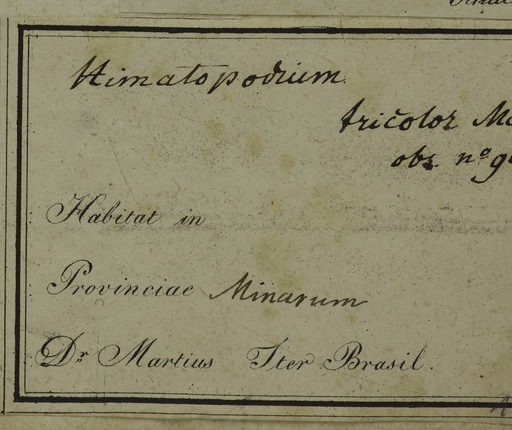 Himatopodium
tricolor
obs. nº
Habitat in
Provinciae Minarum
Dr Martius Iter Brasil.